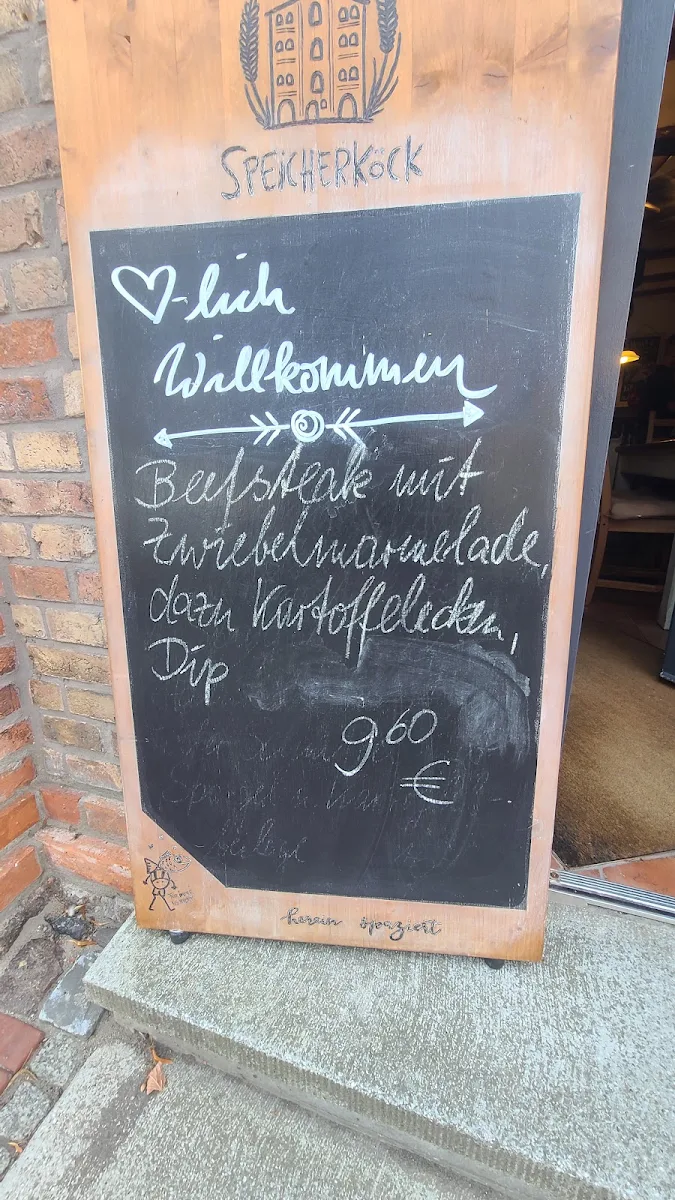 SPEICHERKÖCK
♡-lich
Willkommen
Beefsteak mit
Zwiebelmarmelade,
dazu Kartoffelecken,
Dip
9,60
€
herein spaziert